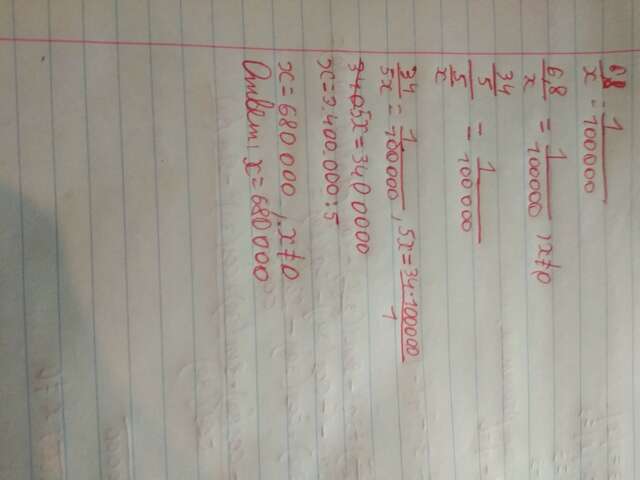 6,8/x = 1/100000
6,8/x = 1/100000, x≠0
34/5/x = 1/100000
34/5x = 1/100000, 5x = 34·100000/1
5x = 3400000
x = 3.400.000:5
x = 680 000, x≠0
Ответ: x = 680000